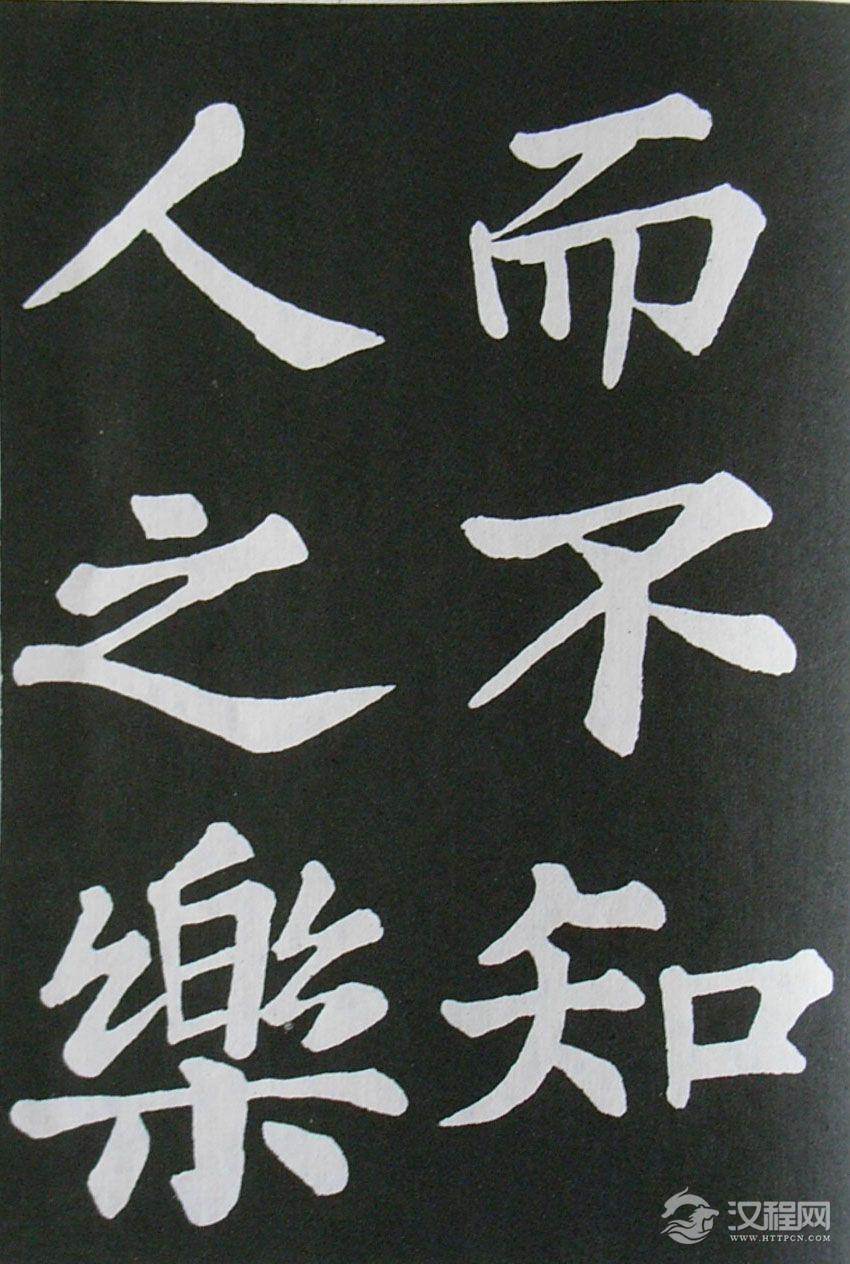 而不知
人之樂
汉程网
WWW.HTTPCN.COM